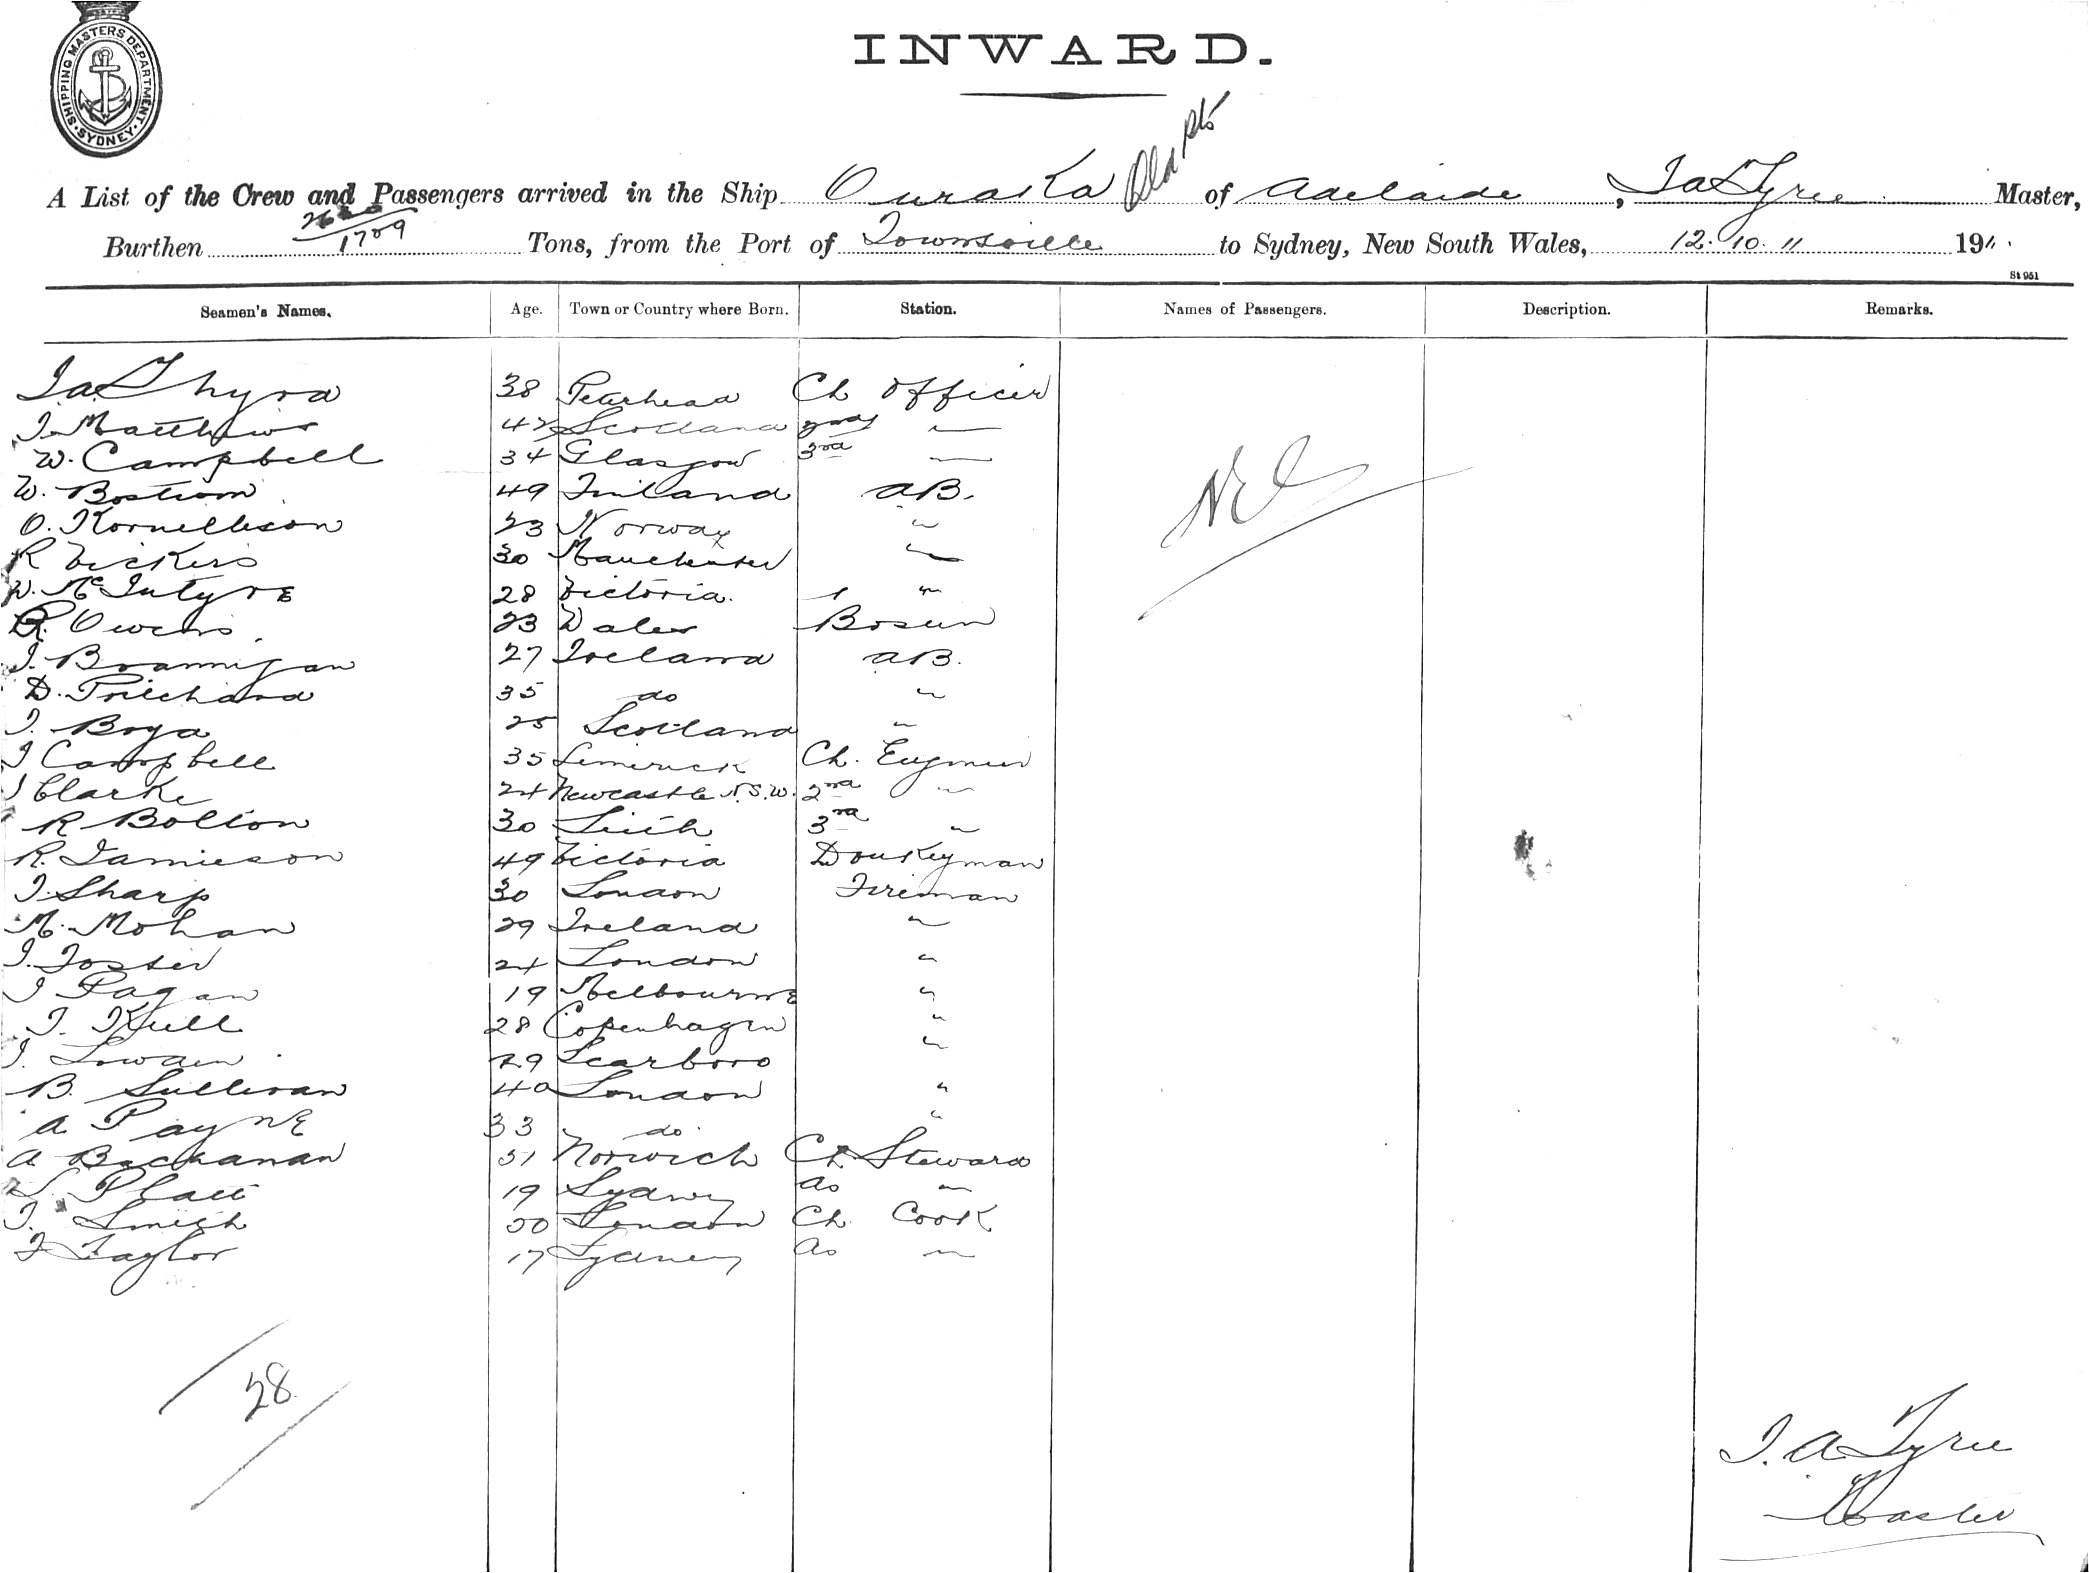 SHIPPING MASTERS DEPARTMENT. SYDNEY
INWARD.
A List of the Crew and Passengers arrived in the Ship Ouraka of Adelaide, J A Tyree Master,
Burthen 1709 Tons, from the Port of Townsville to Sydney, New South Wales, 12.10.11 1911.
St 951
Seamen's Names. Age. Town or Country where Born. Station. Names of Passengers. Description. Remarks.
38 Peterhead Ch Officer
J. Matthews 42 Scotland 2nd "
W. Campbell 34 Glasgow 3rd "
W. Bostrom 49 Finland AB.
O. Kornellison 23 Norway "
R Vickers 30 Manchester "
W. McIntyre 28 Victoria. "
R. Owens 23 Wales Bosun
J. Brannigan 27 Ireland AB.
D. Pritchard 35 do "
J. Boya 25 Scotland "
J Campbell 35 Limerick Ch. Engineer
J Clarke 24 Newcastle N.S.W. 2nd "
R Bolton 30 Leith 3rd "
R. Jamieson 49 Victoria Donkeyman
J. Sharp 30 London Fireman
M. Mohan 29 Ireland "
J. Foster 24 London "
J Pagan 19 Melbourne "
J. Krull 28 Copenhagen "
J. 29 Scarboro "
B. Sullivan 40 London "
A Payne 33 do "
A Buchanan 51 Norwich Ch. Steward
S. Platt 19 Sydney As "
J. Smith 50 London Ch Cook
J Taylor 17 Sydney As "
Nil
28
J. A Tyree
Master